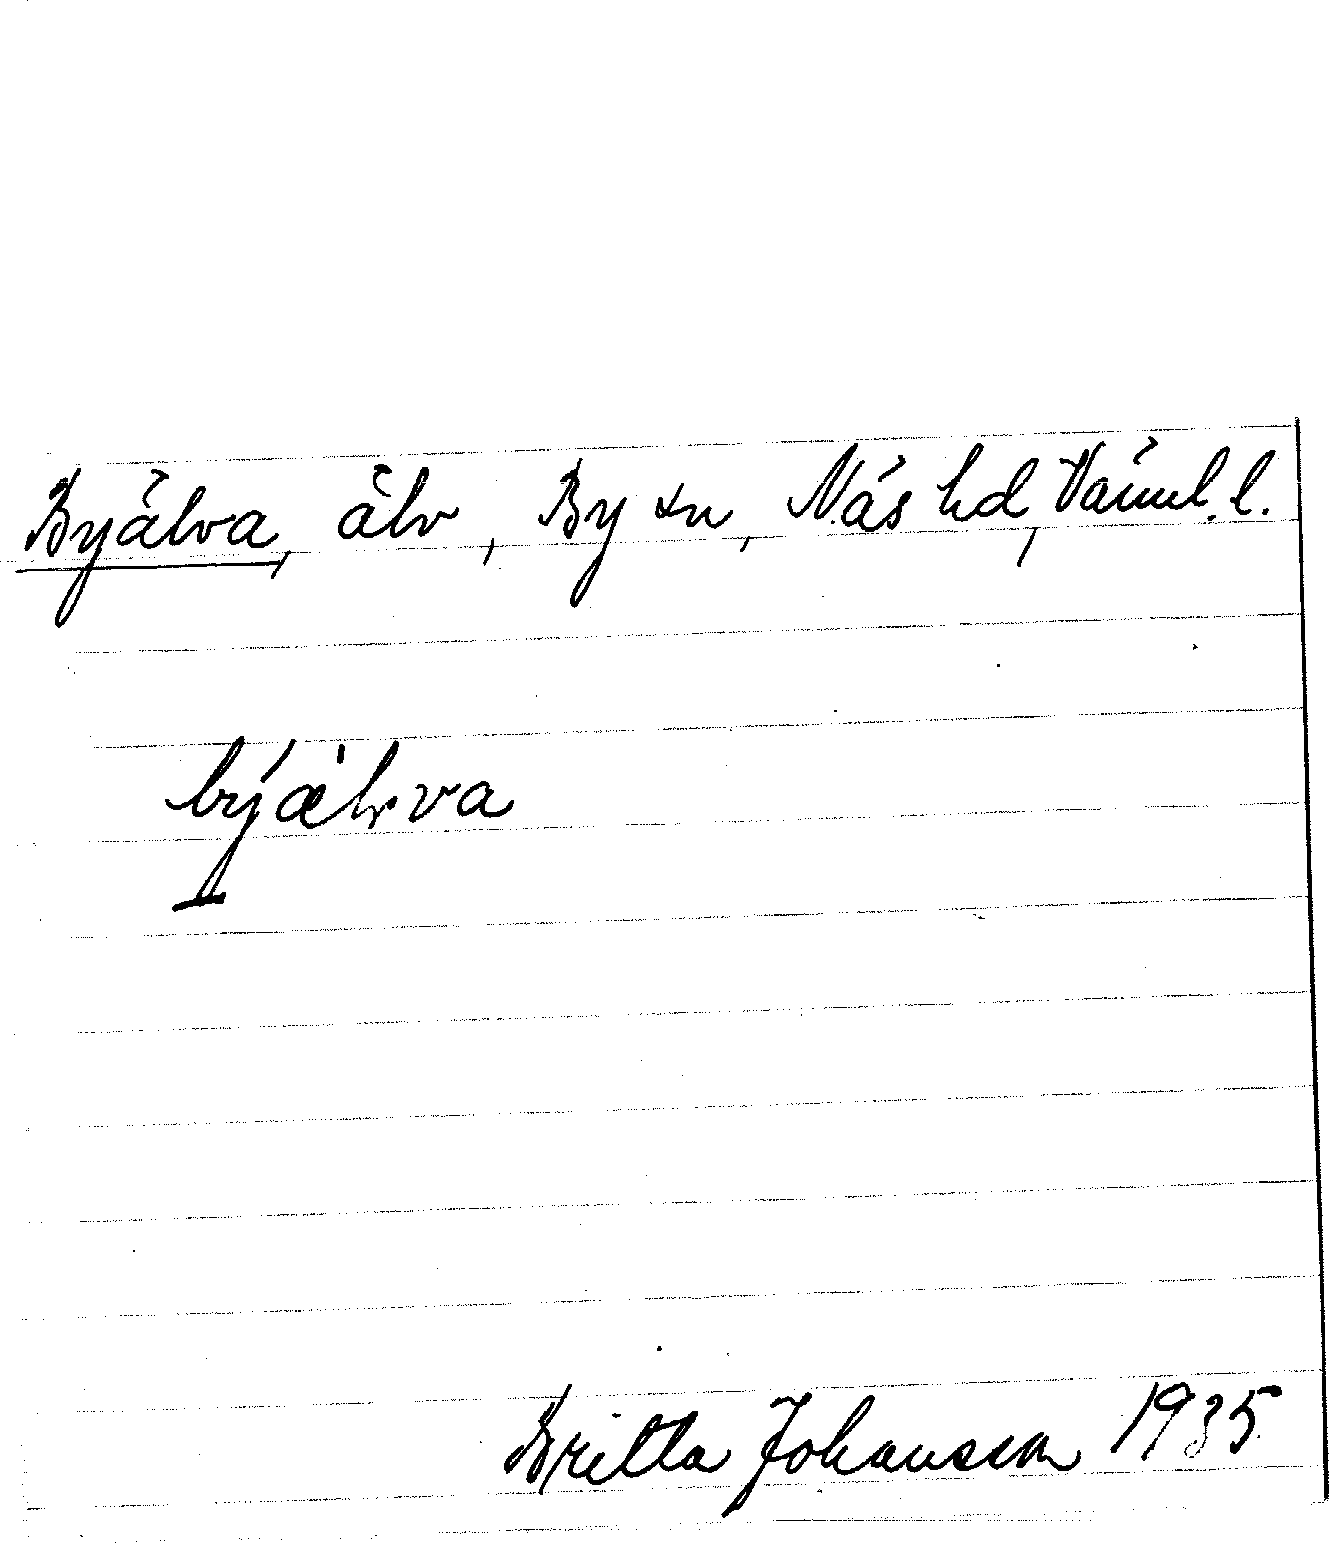 Byälva, älv, By sn, Näs hd, Värml. l.
býæ̀l̥va
Britta Johansson 1935